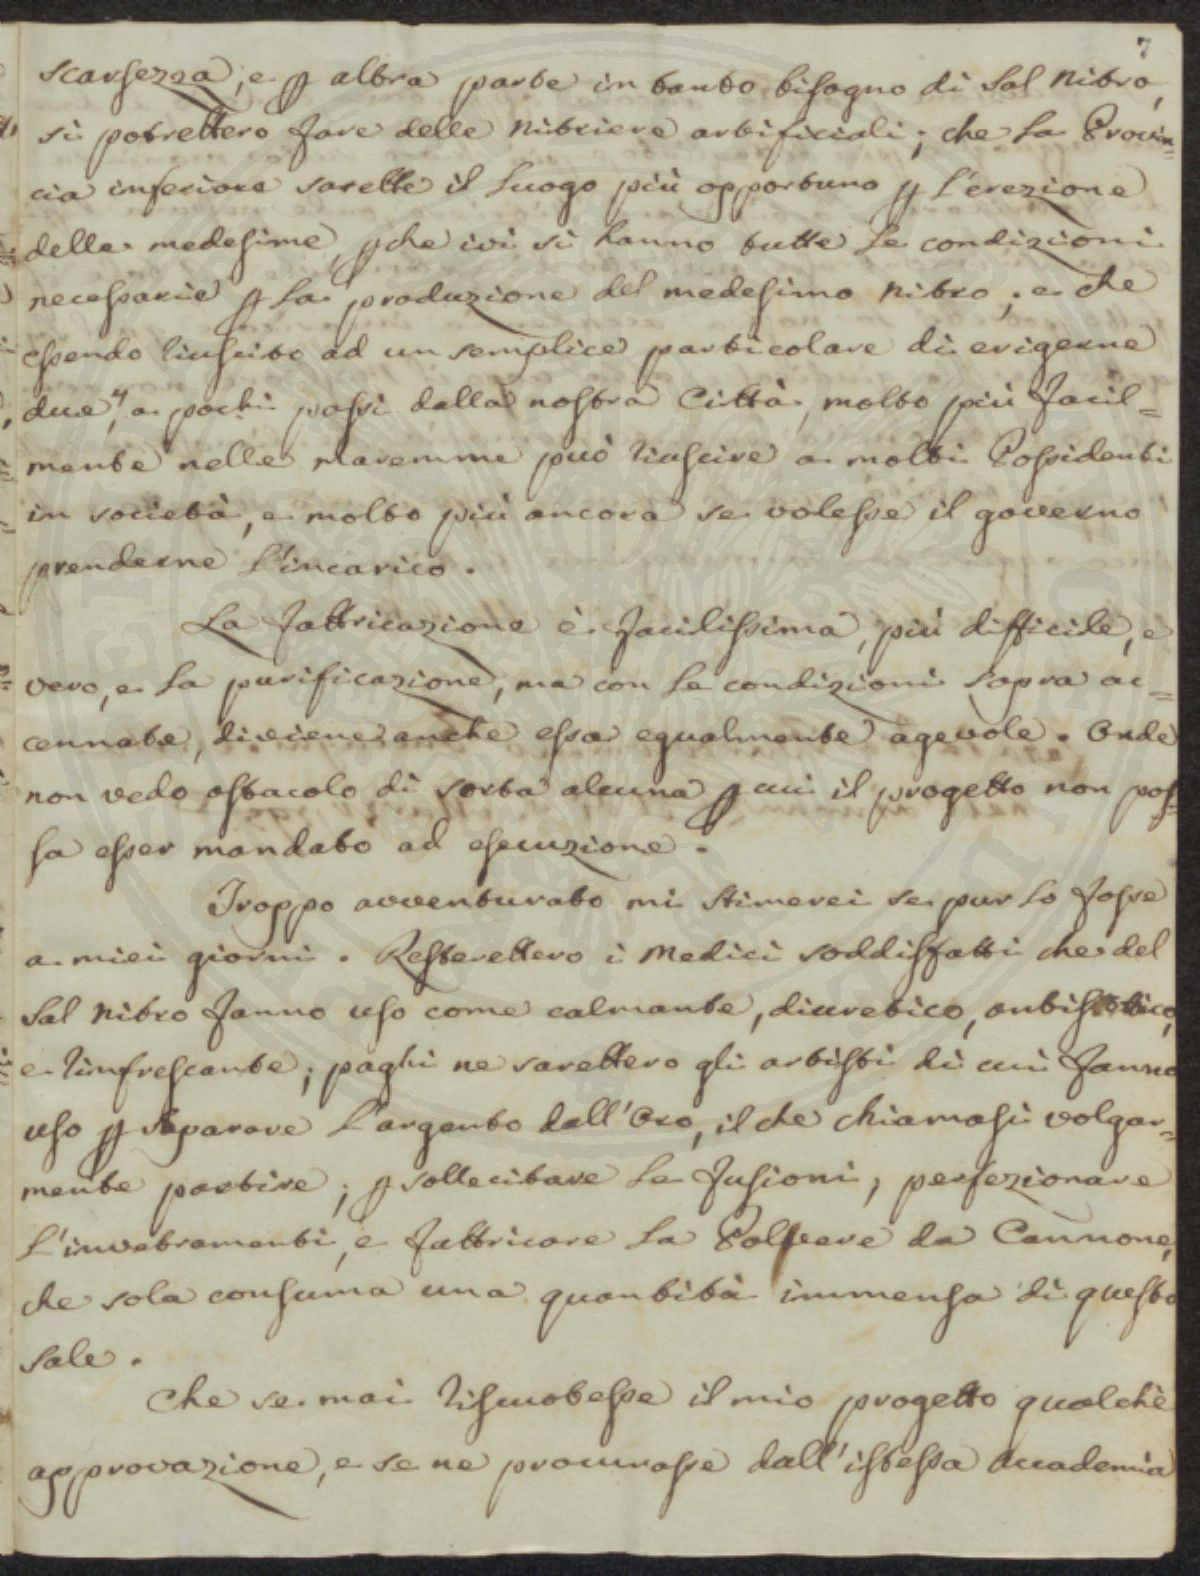 7
scarsezza, e p altra parte in tanto bisogno di Sal Nitro,
si potrebbero fare delle Nitriere artificiali; che la Provin=
cia inferiore sarebbe il luogo più opportuno p l'erezione
delle medesime, pche ivi si hanno tutte le condizioni
necessarie p la produzione del medesimo Nitro; e che
essendo riuscito ad un semplice particolare di erigerne
due, a pochi passi dalla nostra Città, molto più facil=
mente nelle maremme può riuscire a molti Possidenti
in società, e molto più ancora se volesse il governo
prenderne l'incarico.
La fabbricazione è facilissima, più difficile, è
vero, e la purificazione, ma con le condizioni sopra ac=
cennate, diviene anche essa egualmente agevole. Onde
non vedo ostacolo di sorta alcuna p cui il progetto non pos=
sa esser mandato ad esecuzione.
Troppo avventurato mi stimerei se pur lo fosse
a miei giorni. Resterebbero i Medici soddisfatti che del
Sal Nitro fanno uso come calmante, diuretico, antisettico,
e rinfrescante; paghi ne sarebbero gli artisti di cui fanno
uso p separare l'argento dall'Oro, il che chiamasi volgar=
mente partire; p sollecitare le fusioni, perfezionare
l'invetramenti, e fabbricare la Polvere da Cannone,
che sola consuma una quantità immensa di questo
sale.
Che se mai riscuotesse il mio progetto qualche
approvazione, e se ne procurasse dall'istessa Accademia